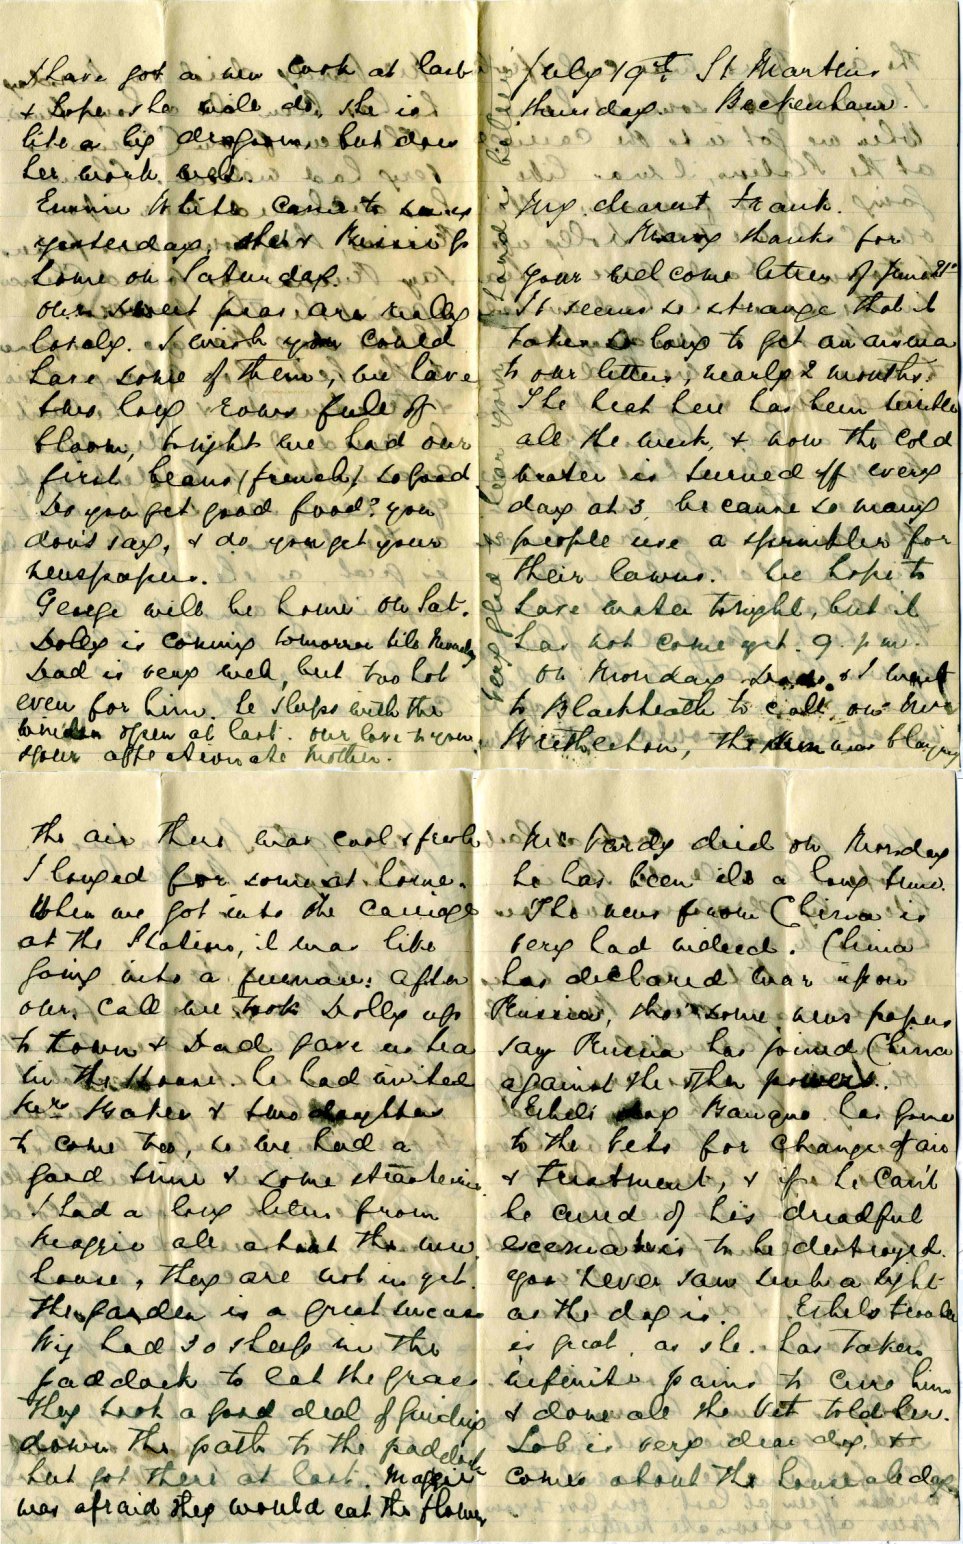 July 19th St Martins
Thursday. Beckenham.
My dearest Frank.
Many thanks for
your welcome letter of June 21st
It seems so strange that it
takes so long to get an answer
to our letters, nearly 2 months.
The heat here has been terrible
all the week, & now the cold
water is turned off every
day at 3, because so many
people use a sprinkler for
their lawns. We hope to
have water tonight, but it
has not come yet. 9. p.m.
on Monday Dad & I went
to Blackheath to call on Mrs
the sun was blazing
the air there was cool & fresh
I longed for some at home.
When we got into the carriage
at the Station, it was like
going into a furnace: after
our call we took Dolly up
to town & Dad gave us tea
in the House. he had invited
Mrs Baker & two daughters
to come too, so we had a
good time & some strawberries.
I had a long letter from
Maggie all about the new
house, they are not in yet.
The garden is a great success
Wij had 30 sheep in the
paddock to eat the grass
They took a good deal of guiding
down the path to the paddock
but got there at last. Maggie
was afraid they would eat the flowers
Mr Pardy died on Monday
he has been ill a long time.
The news from China is
very bad indeed. China
has declared war upon
Russia, tho' some news papers
say Russia has joined China
against the other powers.
Ethels dog has gone
to the Vets for change of air
& treatment, & if he can't
be cured of his dreadful
eccema is to be destroyed.
you never saw such a sight
as the dog is. Ethels trouble
is great, as she has taken
infinite pains to cure him
& done all the Vet told her.
Lob is very dear dog &
comes about the house all day
I have got a new cook at last
& hope she will do. she is
like a big dragoon, but does
her work well.
Emmie White came to us
yesterday, she & go
home on Saturday.
our sweet peas are really
lovely. I wish you could
have some of them, we have
two long rows full of
bloom, tonight we had our
first beans (french) so good
Do you get good food? you
don't say, & do you get your
newspapers.
George will be home on Sat.
Dolly is coming tomorrow till Monday
Dad is very well, but too hot
even for him. he sleeps with the
window open at last. our love to you
your affectionate Mother.
very glad to hear your is